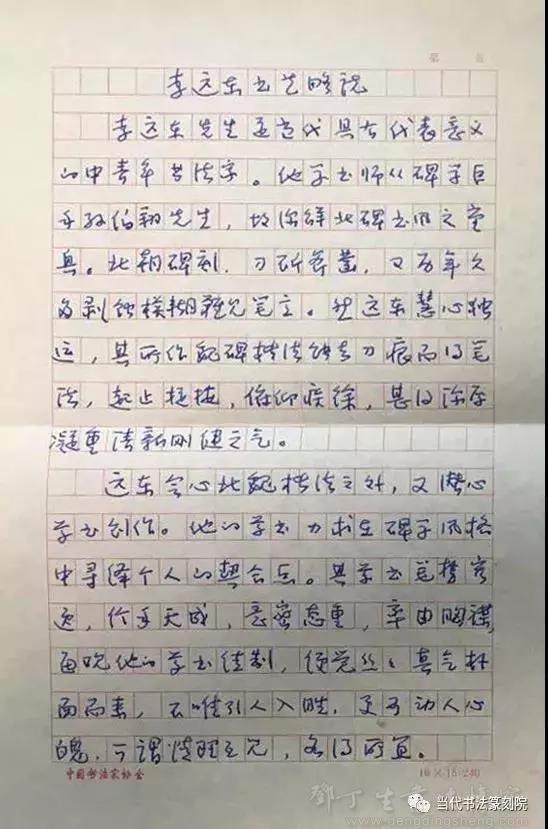 第 页
李远东书艺略说
李远东先生是当代具有代表意义
的中青年书法家。他学书师从碑学巨
子孙伯翔先生，故深解北碑书风之堂
奥。北朝碑刻，刀斫斧凿，又历年久
多剥蚀模糊难见笔立。然远东慧心独
运，其所作魏碑楷法能去刀痕而得笔
法，起止提按，俯仰疾徐，甚得浑厚
凝重清新刚健之气。
远东会心北魏楷法之外，又潜心
草书创作。他的草书力求在碑学风格
中寻绎个人的契合点。其草书
逸，信手天成，意密态重，率由胸襟，
每览他的草书佳制，便觉丝丝真气扑
面而来，不唯引人入胜，更可动人心
魄，可谓情理互见，各得所宜。
中国书法家协会
16×15=240
邓丁生
www.dengdingsheng.com
当代书法篆刻院